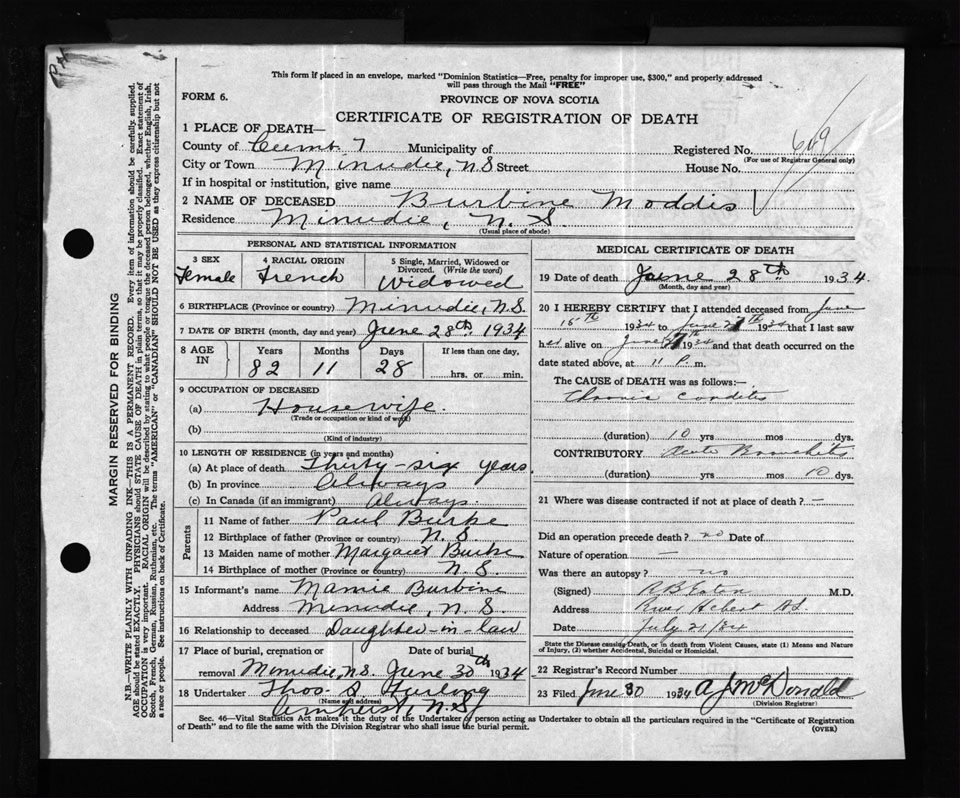 This form if placed in an envelope, marked "Dominion Statistics—Free, penalty for improper use, $300," and properly addressed
will pass through the Mail "FREE"
FORM 6.
PROVINCE OF NOVA SCOTIA
CERTIFICATE OF REGISTRATION OF DEATH
1 PLACE OF DEATH—
County of Cumb. 7 Municipality of Registered No. 649
(For use of Registrar General only)
City or Town Minudie, N.S Street House No.
If in hospital or institution, give name
2 NAME OF DECEASED Burbine Moddis
Residence Minudie, N. S.
(Usual place of abode)
PERSONAL AND STATISTICAL INFORMATION
3 SEX 4 RACIAL ORIGIN 5 Single, Married, Widowed or
Divorced. (Write the word)
Female French Widowed
6 BIRTHPLACE (Province or country) Minudie, N.S.
7 DATE OF BIRTH (month, day and year) June 28th. 1934
8 AGE IN Years Months Days If less than one day,
82 11 28 hrs. or min.
9 OCCUPATION OF DECEASED
(a) Housewife.
(Trade or occupation or kind of work)
(b)
(Kind of industry)
10 LENGTH OF RESIDENCE (in years and months)
(a) At place of death Thirty-six years.
(b) In province Always
(c) In Canada (if an immigrant) Always.
Parents
11 Name of father Paul Burke
12 Birthplace of father (Province or country) N. S.
13 Maiden name of mother Margaret Burke
14 Birthplace of mother (Province or country) N. S.
15 Informant's name Mamie Burbine
Address Minudie, N. S
16 Relationship to deceased Daughter-in-law
17 Place of burial, cremation or Date of burial
removal Minudie, N.S. June 30th 1934
18 Undertaker Thos. S. Furlong
(Name and address)
Amherst, N.S.
MEDICAL CERTIFICATE OF DEATH
19 Date of death June 28th. 1934.
(Month, day and year)
20 I HEREBY CERTIFY that I attended deceased from June
16th 1934 to June 27th 1934 that I last saw
her alive on June 27th 1934 and that death occurred on the
date stated above, at 11 P. m.
The CAUSE OF DEATH was as follows:—
Chronic Carditis
(duration) 10 yrs mos dys.
CONTRIBUTORY Acute Bronchitis
(duration) yrs mos 10 dys.
21 Where was disease contracted if not at place of death? —
Did an operation precede death? no Date of
Nature of operation —
Was there an autopsy? no
(Signed) R B Eaton M.D.
Address River Hebert N.S.
Date July 21/34
State the Disease causing Death, or in death from Violent Causes, state (1) Means and Nature
of Injury, (2) whether Accidental, Suicidal or Homicidal.
22 Registrar's Record Number
23 Filed June 30 1934 A. J. McDonald
(Division Registrar)
Sec. 46—Vital Statistics Act makes it the duty of the Undertaker or person acting as Undertaker to obtain all the particulars required in the "Certificate of Registration
of Death" and to file the same with the Division Registrar who shall issue the burial permit. (OVER)
MARGIN RESERVED FOR BINDING
N.B.—WRITE PLAINLY WITH UNFADING INK—THIS IS A PERMANENT RECORD. Every item of information should be carefully supplied.
AGE should be stated EXACTLY. PHYSICIANS should STATE CAUSE OF DEATH in plain terms, so that it may be properly classified. Exact statement of
OCCUPATION is very important. RACIAL ORIGIN will be described by stating to what people or tongue the deceased person belonged, whether English, Irish,
Scotch, French, German, Russian, Ruthenian, etc. The terms "AMERICAN" or "CANADIAN" SHOULD NOT BE USED as they express citizenship but not
a race or people. See instructions on back of Certificate.